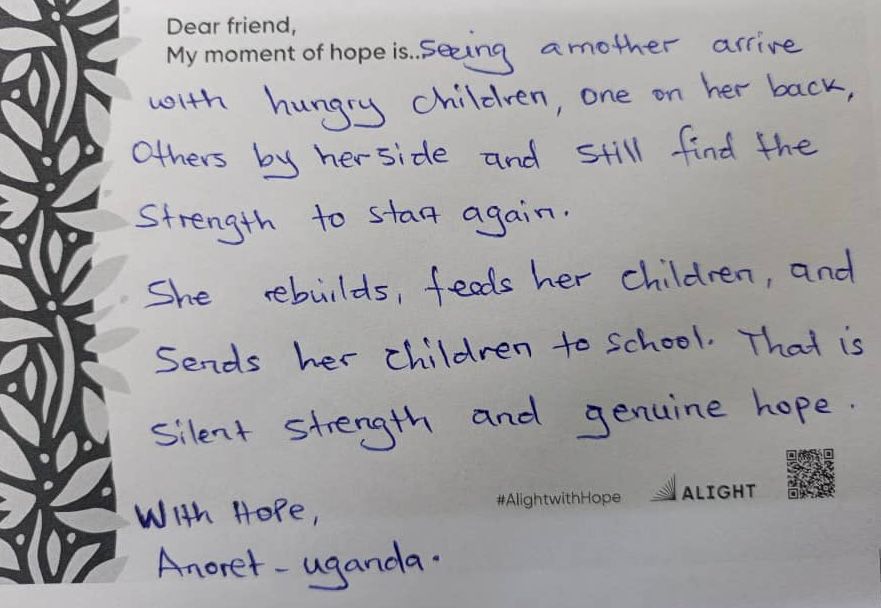 Dear friend,
My moment of hope is..Seeing a mother arrive
with hungry children, one on her back,
Others by her side and still find the
Strength to start again.
She rebuilds, feeds her children, and
Sends her children to school. That is
Silent strength and genuine hope.
#AlightwithHope ALIGHT
With Hope,
Anoret - uganda.